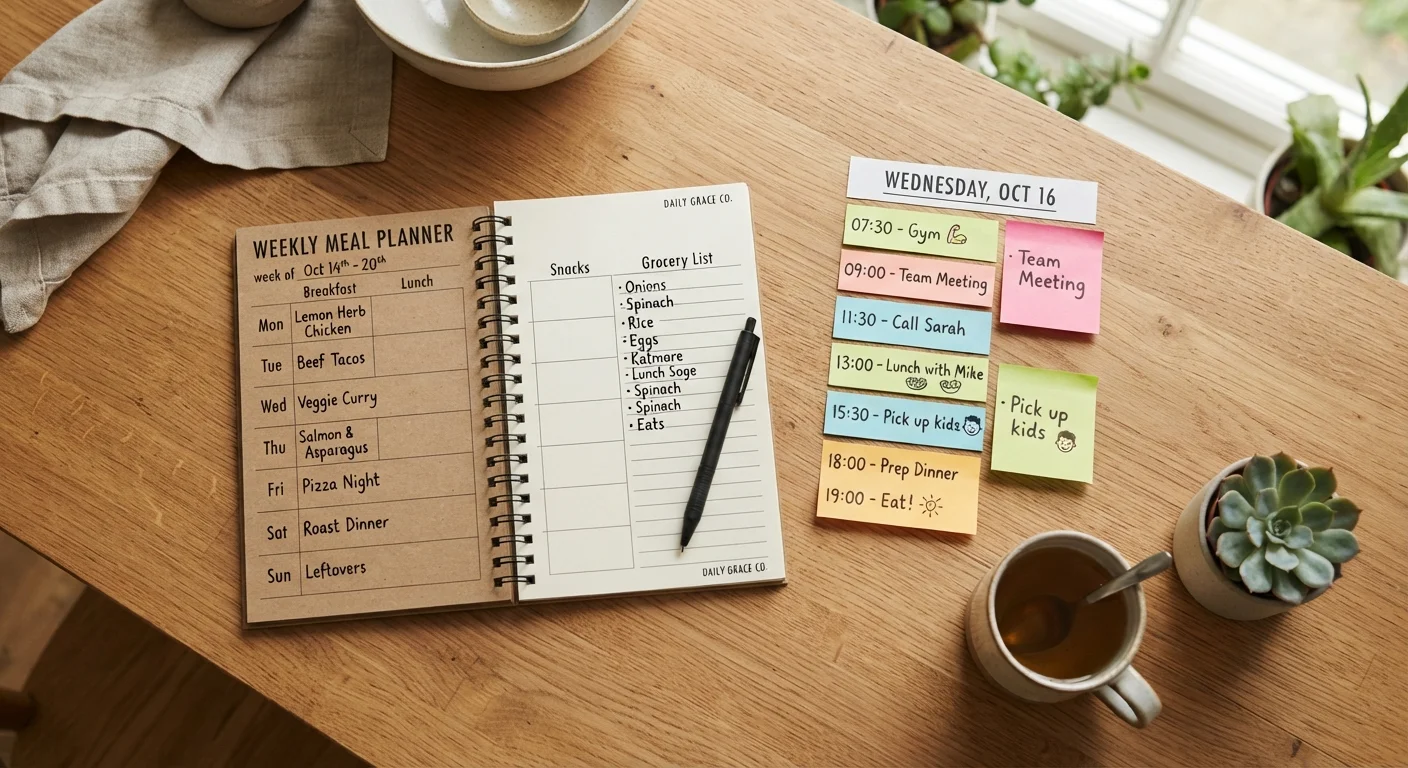 WEEKLY MEAL PLANNER
week of Oct 14th - 20th
Breakfast Lunch
Mon Lemon Herb
Chicken
Tue Beef Tacos
Wed Veggie Curry
Thu Salmon &
Asparagus
Fri Pizza Night
Sat Roast Dinner
Sun Leftovers
DAILY GRACE CO.
Snacks Grocery List
· Onions
· Spinach
· Rice
· Eggs
· Katmore
· Lunch Soge
· Spinach
· Spinach
· Eats
DAILY GRACE CO.
WEDNESDAY, OCT 16
07:30 - Gym
09:00 - Team Meeting
11:30 - Call Sarah
13:00 - Lunch with Mike
15:30 - Pick up kids
18:00 - Prep Dinner
19:00 - Eat!
· Team
Meeting
· Pick up
kids